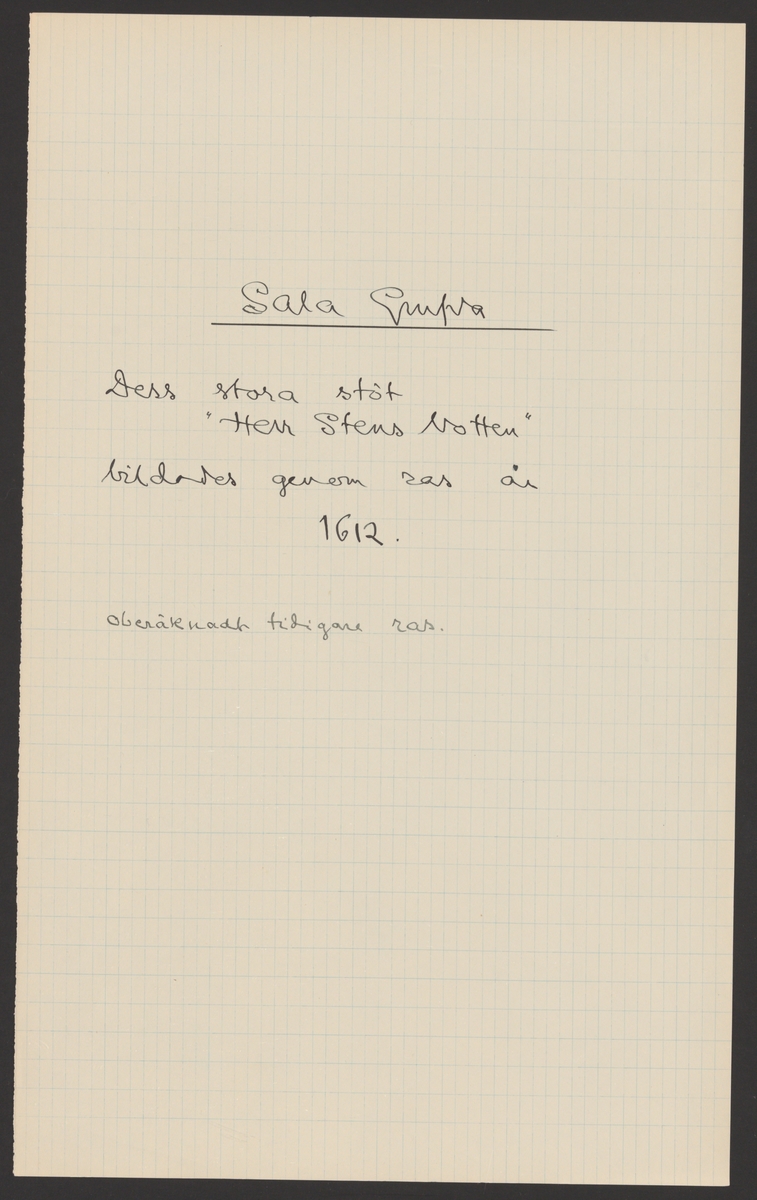 Sala Gruva
Dess stora stöt
"Herr Stens Botten"
bildades genom ras år
1612.
oberäknadt tidigare ras.